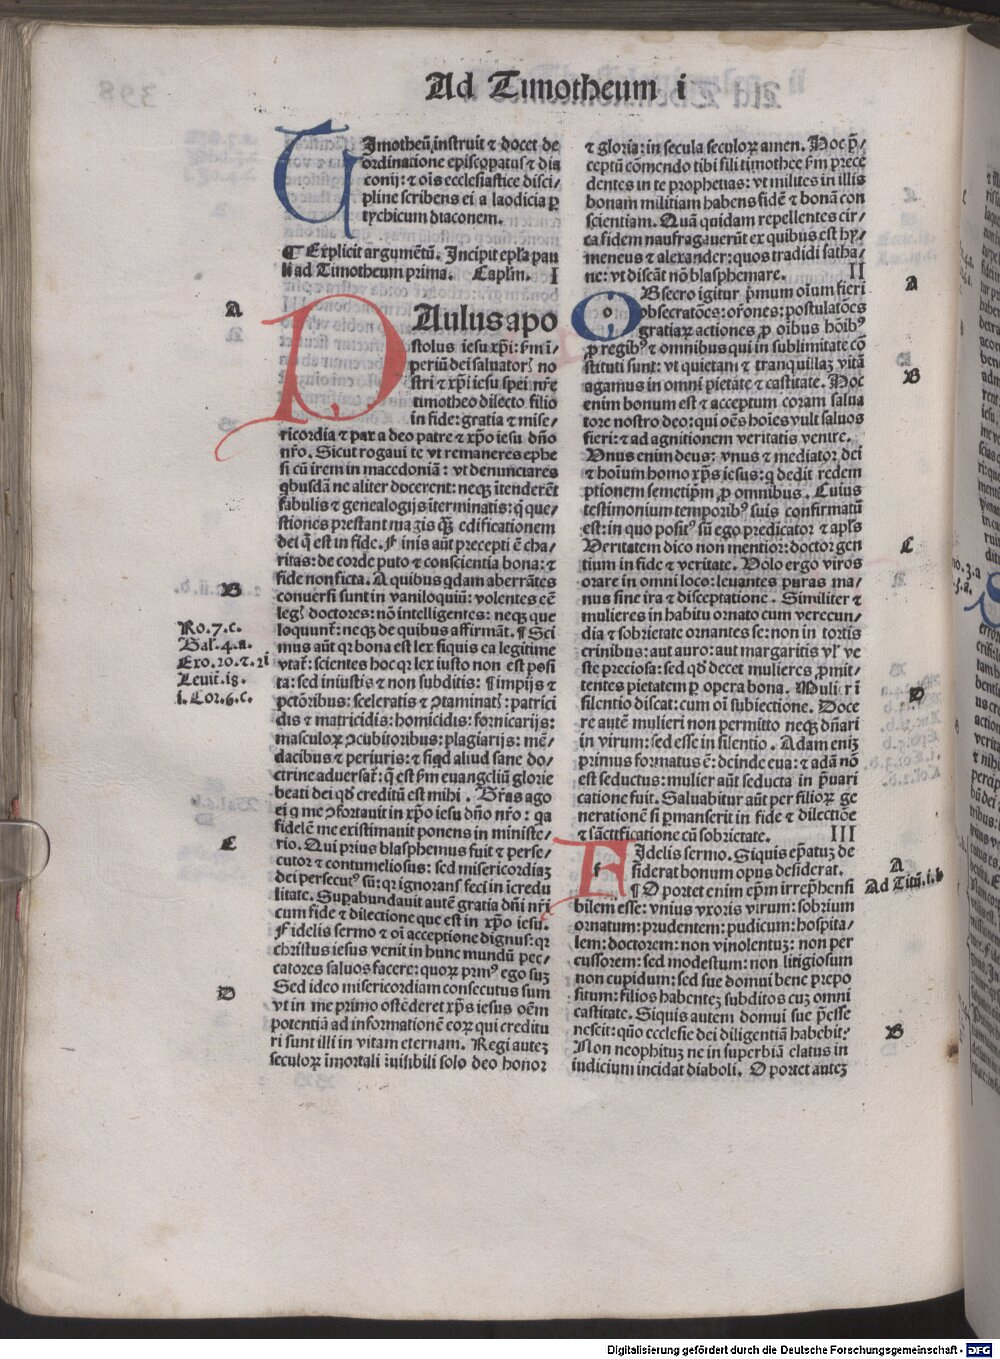 Ad Timotheum i
TImotheū instruit ⁊ docet de
ordinatione episcopatus ⁊ dia
conij: ⁊ oīs ecclesiastice disci/
pline scribens ei a laodicia ꝑ
tychicum diaconem.
¶ Explicit argumētū. Incipit epl'a pau
li ad Timotheum prima. Caplm. I
A
PAulus apo
stolus iesu xp̄i: ẜm i/
periū dei saluatorꝭ no
stri ⁊ xp̄i iesu spei nr̄e
timotheo dilecto filio
in fide: gratia ⁊ mise/
ricordia ⁊ pax a deo patre ⁊ xp̄o iesu dn̄o
nr̄o. Sicut rogaui te vt remaneres ephe
si cū irem in macedoniā: vt denunciares
qbusdā ne aliter docerent: neqꝫ ītenderēt
fabulis ⁊ genealogijs īterminatis: q̄ que/
stiones prestant magis qꝫ̄ edificationem
dei q̄ est in fide. Finis aūt precepti ē cha/
ritas: de corde puro ⁊ conscientia bona: ⁊
fide non ficta. A quibus qdam aberrātes
B
conuersi sunt in vaniloquiū: volentes eē
legꝭ doctores: nō intelligentes: neqꝫ que
loquunt᷑: neqꝫ de quibus affirmāt. ¶ Sci
Ro.7.c.
Gal'.4.a.
Exo.20.⁊.21
Leuit.18.
i.Cor.6.c.
mus aūt qꝛ bona est lex siquis ea legitime
vtat᷑: scientes hoc qꝛ lex iusto non est posi
ta: sed iniustis ⁊ non subditis: ¶ impijs ⁊
pctōribus: sceleratis ⁊ ꝯtaminatꝭ: patrici
dis ⁊ matricidis: homicidis: fornicarijs:
masculoꝝ ꝯcubitoribus: plagiarijs: mē/
dacibus ⁊ periuris: ⁊ siqd aliud sane do/
ctrine aduersat᷑: q̄ est ẜm euangeliū glorie
beati dei qd̄ creditū est mihi. Gr̄as ago
ei q me ꝯfortauit in xp̄o iesu dn̄o nr̄o: qa
fidelē me existimauit ponens in ministe/
C
rio. Qui prius blasphemus fuit ⁊ perse/
cutor ⁊ contumeliosus: sed misericordiaꝫ
dei persecutꝰ sū: qꝛ ignorans feci in icredu
litate. Supabundauit autē gratia dn̄i nr̄i
cum fide ⁊ dilectione que est in xp̄o iesu.
Fidelis sermo ⁊ oī acceptione dignus: qꝛ
christus iesus venit in hunc mundū pec/
catores saluos facere: quoꝝ prīmꝰ ego suꝫ
D
Sed ideo misericordiam consecutus sum
vt in me primo ostēderet xp̄s iesus oēm
potentiā ad informationē eoꝝ qui creditu
ri sunt illi in vitam eternam. Regi auteꝫ
seculoꝝ īmortali īuisibili solo deo honor
⁊ gloria: in secula seculoꝝ amen. Hoc p̄/
ceptū cōmendo tibi fili timothee ẜm prece
dentes in te prophetias: vt milites in illis
bonam militiam habens fidē ⁊ bonā con
scientiam. Quā quidam repellentes cir/
ca fidem naufragauerūt ex quibus est hy/
meneus ⁊ alexander: quos tradidi satha/
ne: vt discāt nō blasphemare. II
A
OBsecro igitur p̄mum oīum fieri
obsecratōes: or̄ones: postulatōes
gratiaꝝ actiones ꝓ oībus hōibꝰ
ꝓ regibꝰ ⁊ omnibus qui in sublimitate cō
stituti sunt: vt quietam ⁊ tranquillaꝫ vitā
B
agamus in omni pietate ⁊ castitate. Hoc
enim bonum est ⁊ acceptum coram salua
tore nostro deo: qui oēs hoīes vult saluos
fieri: ⁊ ad agnitionem veritatis venire.
Vnus enim deus: vnus ⁊ mediator dei
⁊ hoīum homo xp̄s iesus: q dedit redem
ptionem semetipm̄ ꝓ omnibus. Cuius
testimonium temporibꝰ suis confirmatū
est: in quo positꝰ sū ego predicator ⁊ apl's
C
Veritatem dico non mentior: doctor gen
tium in fide ⁊ veritate. Volo ergo viros
orare in omni loco: leuantes puras ma/
nus sine ira ⁊ disceptatione. Similiter ⁊
mulieres in habitu ornato cum verecun/
dia ⁊ sobrietate ornantes se: non in tortis
crinibus: aut auro: aut margaritis vl' ve
ste preciosa: sed qd̄ decet mulieres ꝓmit/
tentes pietatem ꝑ opera bona. Mulier i
D
silentio discat: cum oī subiectione. Doce
re autē mulieri non permitto neqꝫ dn̄ari
in virum: sed esse in silentio. Adam eniꝫ
primus formatus ē: deinde eua: ⁊ adā nō
est seductus: mulier aūt seducta in p̄uari
catione fuit. Saluabitur aūt per filioꝝ ge
nerationē si ꝑmanserit in fide ⁊ dilectiōe
⁊ sāctificatione cū sobrietate. III
A
FIdelis sermo. Siquis ep̄atuꝫ de
siderat bonum opus desiderat.
Ad Titū.i.b
¶ Oportet enim ep̄m irrep̄hensi
bilem esse: vnius vxoris virum: sobrium
ornatum: prudentem: pudicum: hospita/
lem: doctorem: non vinolentuꝫ: non per
cussorem: sed modestum: non litigiosum
non cupidum: sed sue domui bene prepo
situm: filios habenteꝫ subditos cuꝫ omni
castitate. Siquis autem domui sue p̄esse
B
nescit: quō ecclesie dei diligentiā habebit?
Non neophituꝫ ne in superbiā elatus in
iudicium incidat diaboli. Oportet auteꝫ
Digitalisierung gefördert durch die Deutsche Forschungsgemeinschaft - DFG